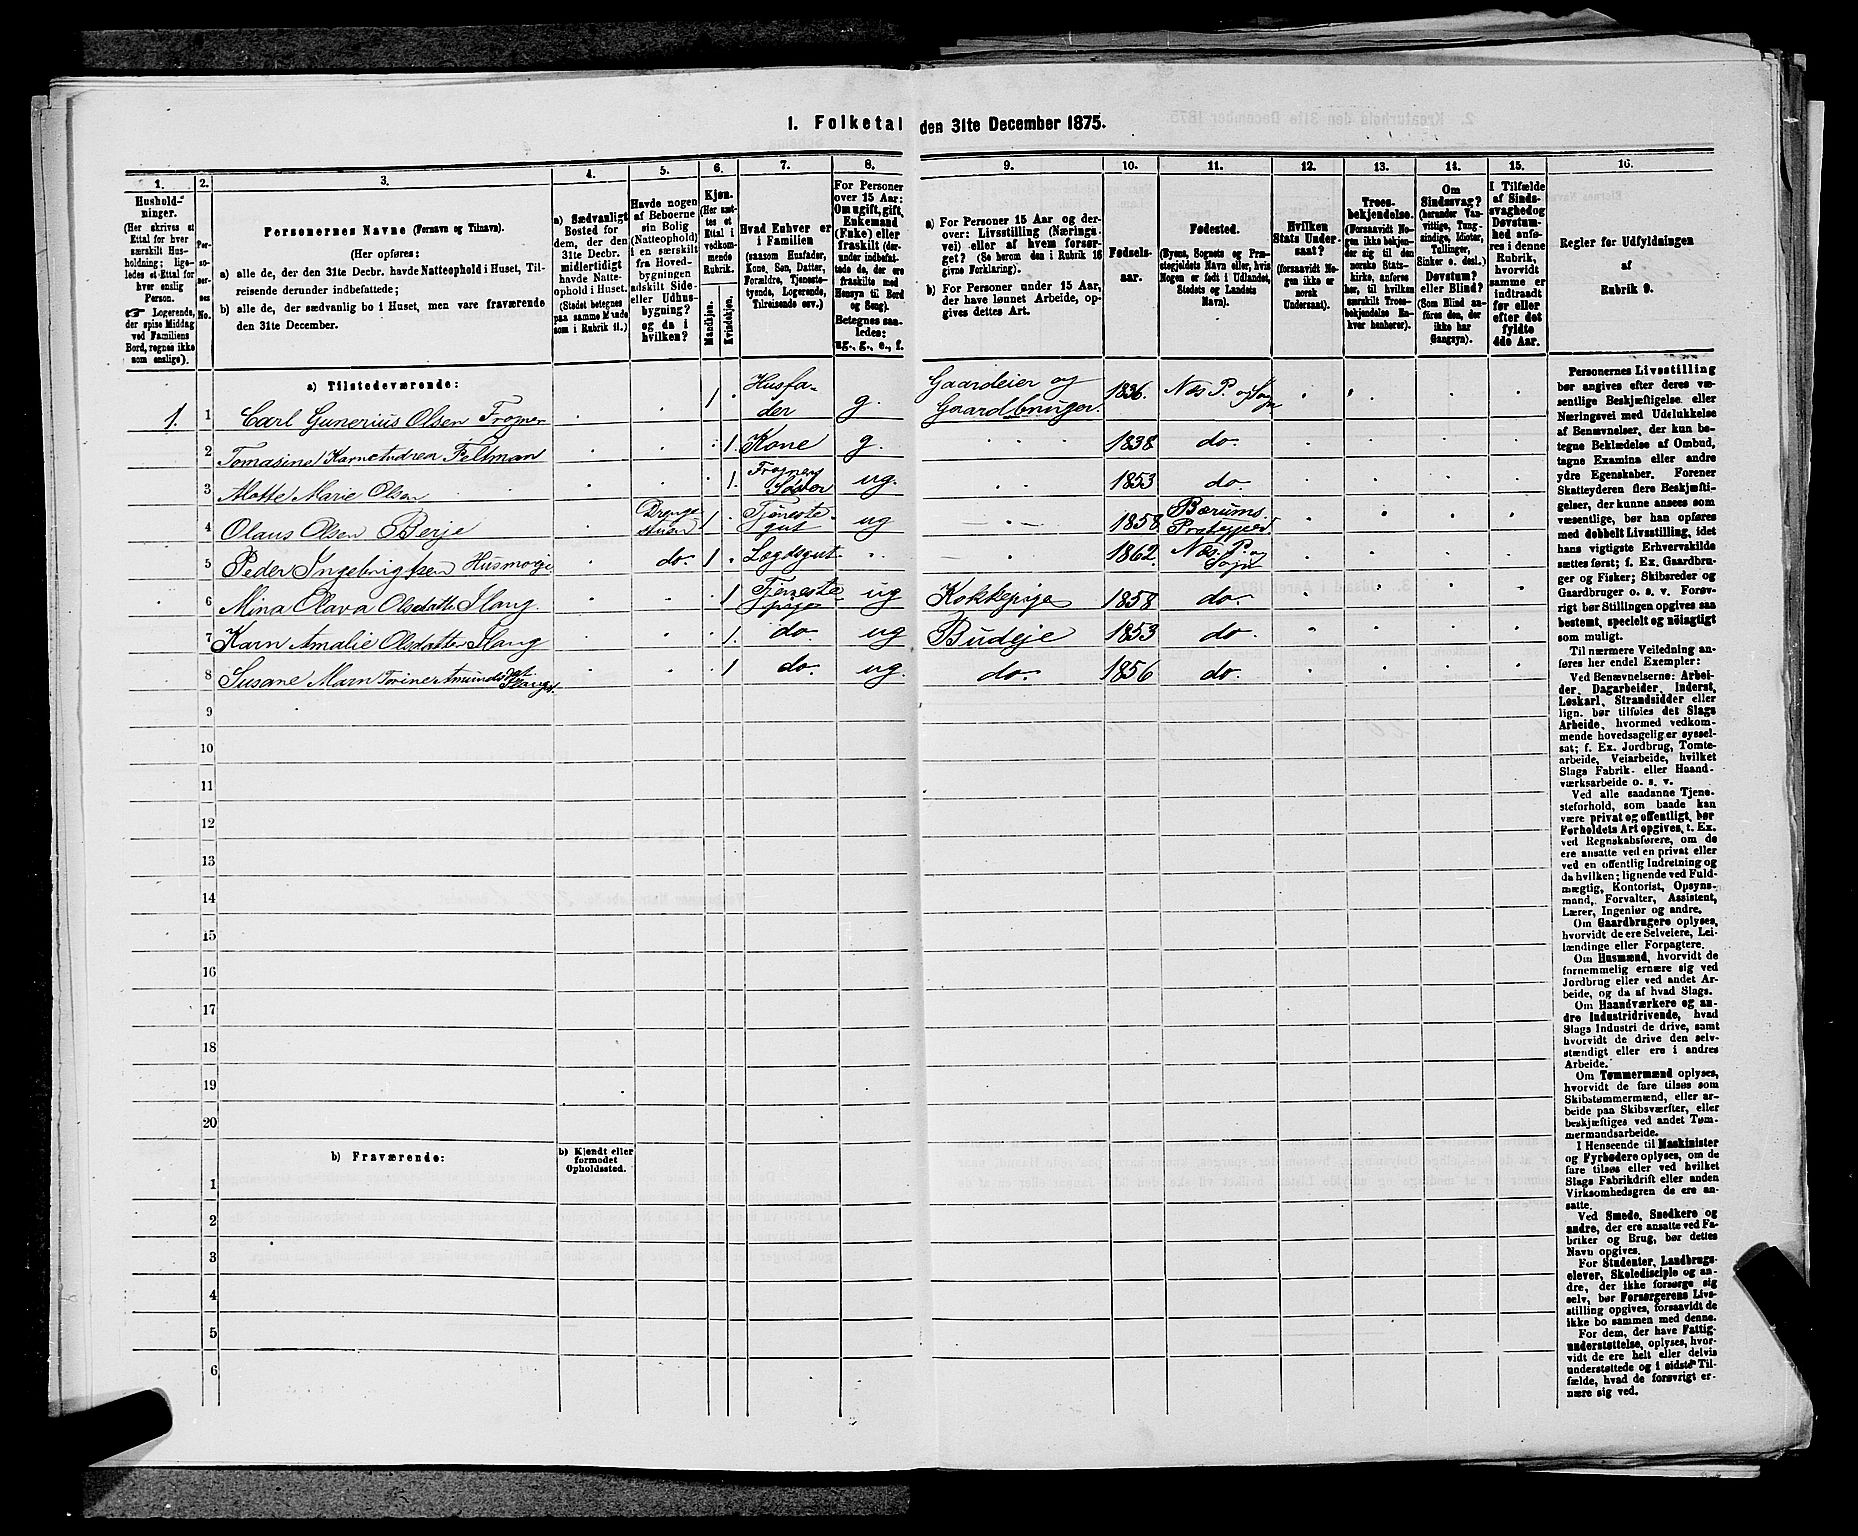 1. Folketal den 31te December 1875.
1.
Hushold-
ninger.
(Her skrives et
Ettal for hver
særskilt Hus-
holdning; lige-
ledes et Ettal for
hver enslig
Person.
☞ Logerende,
der spise Middag
ved Familiens
Bord, regnes ikke
som enslige).
2.
Per-
so-
ner-
nes
No.
3.
Personernes Navne (Fornavn og Tilnavn).
(Her opføres:
a) alle de, der den 31te Decbr. havde Natteophold i Huset, Til-
reisende derunder indbefattede;
b) alle de, der sædvanlig bo i Huset, men vare fraværende
den 31te December.
4.
a) Sædvanligt
Bosted for
dem, der den
31te Decbr.
midlertidigt
havde Natte-
ophold i Huset.
(Stedet betegnes
paa samme Maade
som i Rubrik 11.)
5.
Havde nogen
af Beboerne
sin Bolig
(Natteophold)
i en særskilt
fra Hoved-
bygningen
adskilt Side-
eller Udhus-
bygning?
og da i
hvilken?
6.
Kjøn.
(Her sæt-
tes et
Ettal i
vedkom-
mende
Rubrik.
Mandkjøn.
Kvindekjøn.
7.
Hvad Enhver er
i Familien
(saasom Husfader,
Kone, Søn, Datter,
Forældre, Tjeneste-
tyende, Logerende,
Tilreisende osv.)
8.
For Personer
over 15 Aar:
Om ugift, gift,
Enkemand
(Enke) eller
fraskilt (der-
under indbefat-
tede de, der ere
fraskilte med
Hensyn til Bord
og Seng).
Betegnes saa-
ledes:
ug., g., e., f.
9.
a) For Personer 15 Aar og der-
over: Livsstilling (Nærings-
vei) eller af hvem forsør-
get? (Se herom den i Rubrik 16
givne Forklaring).
b) For Personer under 15 Aar,
der have lønnet Arbeide, op-
gives dettes Art.
10.
Fødsels-
aar.
11.
Fødested.
(Byens, Sognets og Præ-
stegjeldets Navn eller, hvis
Nogen er født i Udlandet,
Stedets og Landets
Navn).
12.
Hvilken
Stats Under-
saat?
(forsaavidt No-
gen ikke er
norsk
Undersaat).
13.
Troes-
bekjendelse.
(Forsaavidt No-
gen ikke bekjen-
der sig til den
norske Stats-
kirke, anføres
her, til hvilken
særskilt Troes-
bekjendelse En-
hver henhører).
14.
Om
Sindssvag?
(herunder Van-
vittige, Tung-
sindige, Idioter,
Tullinger,
Sinker o. desl.)
Døvstum?
eller Blind?
(Som Blind an-
føres den, der
ikke har
Gangsyn).
15.
I Tilfælde
af Sinds-
svaghed og
Døvstum-
hed anfø-
res i denne
Rubrik,
hvorvidt
samme er
indtraadt
før eller
efter det
fyldte
4de Aar.
16.
Regler for Udfyldningen
af
Rubrik 9.
a) Tilstedeværende:
1. 1 Carl Gunerius Olsen Frogner 1 Husfa-der g. Gaardeier og Gaardbruger. 1836. Næs P. og Sogn
2 Tomasine Karn Andrea Feltman 1 Kone g. 1838 do.
3 Alotte Marie Olsen 1. Frogners Søster ug. 1853 do.
4 Olaus Olsen Berje Drenge stuen 1 Tjeneste gut ug 1858. Bærums Prestegjeld
5 Peder Ingebrigtsen Husmorje do. 1 Lægdsgut 1862. Næs P. og Sogn
6 Mina Olava Olsdatter Ilang 1 Tjeneste pige ug Kokkepige 1858 do.
7 Karn Amalie Olsdatter Ilang 1. do. ug Budeje 1853 do.
8 Susane Marn Torine Amundsdat. 1 do. ug. do. 1856 do.
9
10
11
12
13
14
15
16
17
18
19
20
b) Fraværende:
b) Kjendt eller
formodet
Opholdssted.
1
2
3
4
5
6
Personernes Livsstilling
bør angives efter deres væ-
sentlige Beskjæftigelse eller
Næringsvei med Udelukkelse
af Benævnelser, der kun be-
tegne Beklædelse af Ombud,
tagne Examina eller andre
ydre Egenskaber. Forener
Skatteyderen flere Beskjæfti-
gelser, der kunne ansees som
væsentlige, bør han opføres
med dobbelt Livsstilling, idet
hans vigtigste Erhvervskilde
sættes først; f. Ex. Gaardbru-
ger og Fisker; Skibsreder og
Gaardbruger o. s. v. Forøv-
rigt bør Stillingen opgives saa
bestemt, specielt og nöiagtigt
som muligt.
Til nærmere Veiledning an-
føres her endel Exempler:
Ved Benævnelserne: Arbei-
der, Dagarbeider, Inderst,
Løskarl, Strandsidder eller
lign. bør tilføies det Slags
Arbeide, hvormed vedkom-
mende hovedsagelig er syssel-
sat; f. Ex. Jordbrug, Tomte-
arbeide, Veiarbeide, hvilket
Slags Fabrik- eller Haand-
værksarbeide o. s. v.
Ved alle saadanne Tjene-
steforhold, som baade kan
være privat og offentligt, bør
Forholdets Art opgives, t. Ex.
ved Regnskabsførere, om de
ere ansatte ved en privat eller
ved en offentlig Indretning og
da hvilken; lignende ved Fuld-
mægtig, Kontorist, Opsyns-
mand, Forvalter, Assistent,
Lærer, Ingeniør og andre.
Om Gaardbrugere oplyses,
hvorvidt de ere Selveiere, Lei-
lændinge eller Forpagtere.
Om Husmænd, hvorvidt de
fornemmelig ernære sig ved
Jordbrug eller ved andet Ar-
beide, og da af hvad Slags.
Om Haandværkere og an-
dre Industridrivende, hvad
Slags Industri de drive, samt
hvorvidt de drive den selv-
stændigt eller ere i andres
Arbeide.
Om Tømmermænd oplyses,
hvorvidt de fare tilsøs som
Skibstømmermænd, eller ar-
beide paa Skibsværfter, eller
beskjæftiges ved andet Tøm-
mermandsarbeide.
I Henseende til Maskinister
og Fyrbødere oplyses, om de
fare tilsøs eller ved hvilket
Slags Fabrikdrift eller anden
Virksomhedsgren de ere an-
satte.
Ved Smede, Snedkere og
andre, der ere ansatte ved Fa-
briker og Brug, bør dettes
Navn opgives.
For Studenter, Landbrugs-
elever, Skoledisciple og an-
dre, der ikke forsørge sig
selv, bør Forsørgerens Livs-
stilling opgives, forsaavidt de
ikke bo sammen med denne.
For dem, der have Fattig-
understøttelse, oplyses, hvor-
vidt de ere helt eller delvis
understøttede og i sidste Til-
fælde, hvad de forøvrigt er-
nære sig ved.